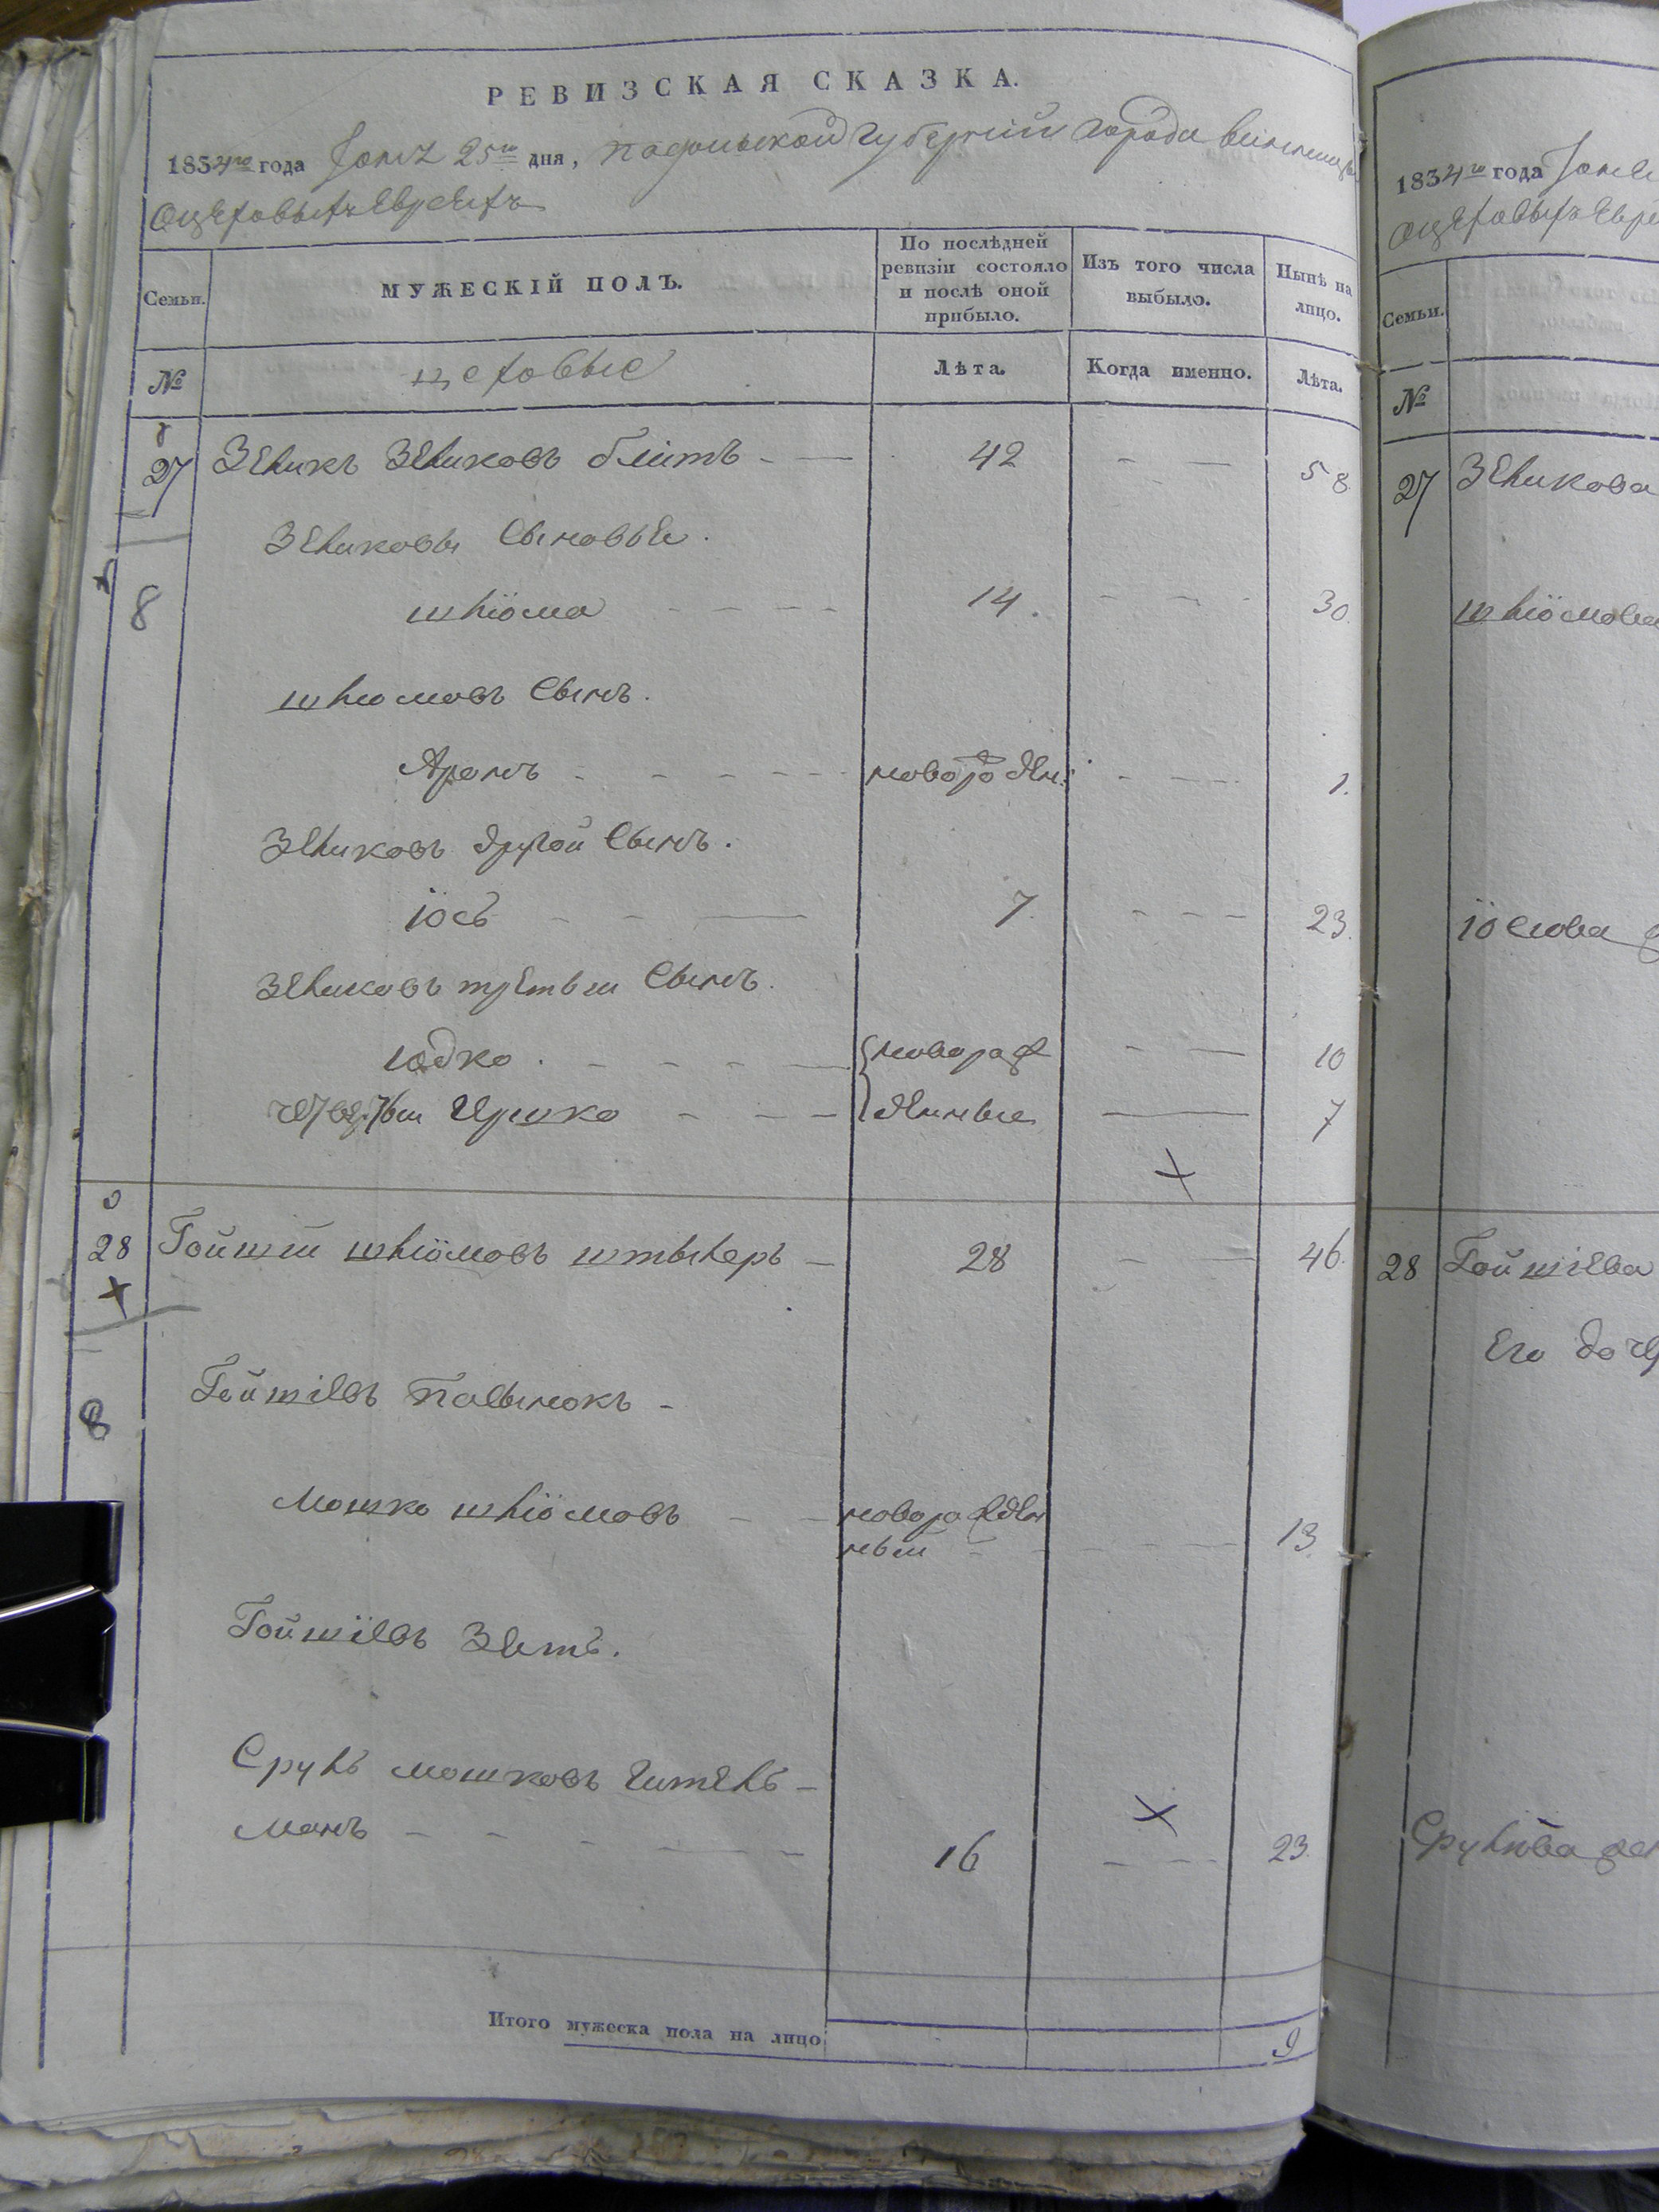 РЕВИЗСКАЯ СКАЗКА.
1834го года Iюня 25го дня, подольской губернiи города винницы
оцеховыхъ Евреяхъ
Семьи.
МУЖЕСКІЙ ПОЛЪ.
По послѣдней ревизіи состояло и послѣ оной прибыло.
Изъ того числа выбыло.
Нынѣ на лицо.
№
цеховые
Лѣта.
Когда именно.
Лѣта.
27 Зеликъ Зеликовъ блитъ - — 42 - — 58
Зеликовы Сыновья.
8
шліома - - - - 14. - - - 30.
шлиомовъ Сынъ.
Аронъ - - - - - новорожден: - — 1.
Зеликовъ другой Сынъ.
іось - - — 7. - - - 23.
Зеликовъ третьи Сынъ.
юдко. - - - — новорож - — 10
четвертыи Ицико - - — денные — 7
28 Гойшіи шліомовъ штыхеръ — 28 - — 46.
8
Гойшіевъ Пасынокъ -
мошко шліомовъ - - новорожден
ныи - - - - — 13.
Гойшіевъ Зять.
Сруль мошковъ гитель-
манъ - - - — - 16 - - - 23.
Итого мужеска пола на лицо 9
1834го года Iюня
оцеховыхъ Евре
Семьи.
№
27 Зеликова
шліомова
іосіова
28 Гойшіева
Его доче
Срулiова